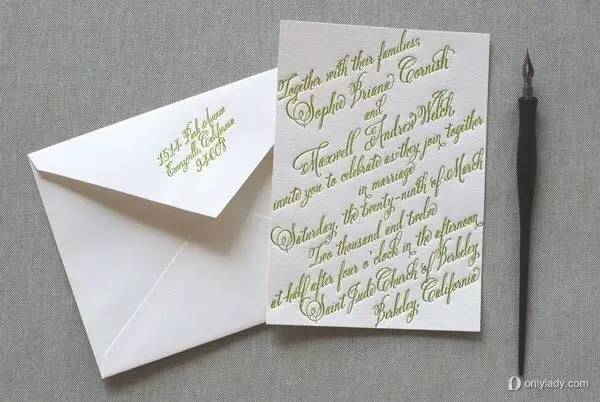 Together with their families,
Sophie Briana Cornish
and
Maxwell Andrew Welch
invite you to celebrate as they join together
in marriage
Saturday, the twenty-ninth of March
Two thousand and twelve
at half after four o'clock in the afternoon
Saint Jude Church of Berkeley
Berkeley, California
California
onlylady.com